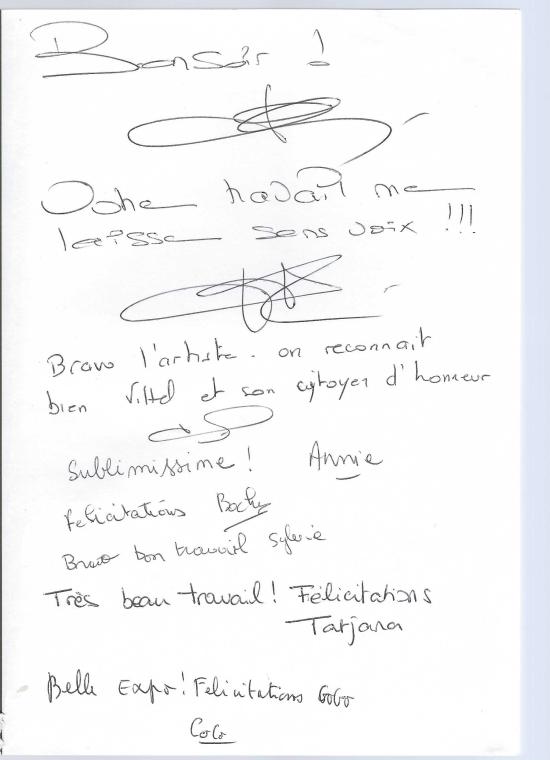 Bonsoir !
Votre travail me
laisse sans voix !!!
Bravo l'artiste. on reconnait
bien Vittel et son citoyen d'honneur
Sublimissime ! Annie
Félicitations
Bravo bon travail Sylvie
Très beau travail ! Félicitations
Tatjana
Belle Expo ! Félicitations GoGo
CoCo